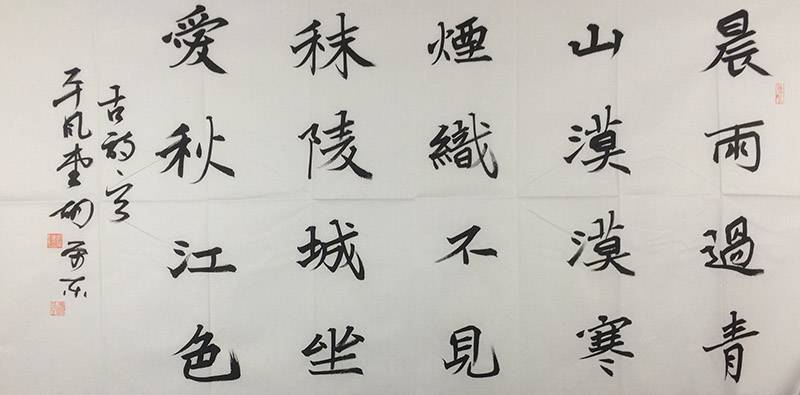 晨雨過青
山漠漠寒
煙織不見
秣陵城坐
愛秋江色
古詩一首